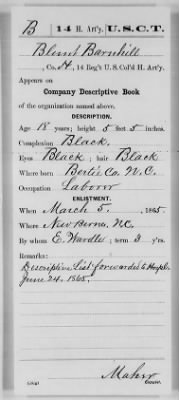 B 14 H. Art'y. U.S.C.T.
Blunt Barnhill
, Co. H, 14 Reg't U. S. Col'd H. Art'y.
Appears on
Company Descriptive Book
of the organization named above.
DESCRIPTION.
Age 18 years; height 5 feet 5 inches.
Complexion Black.
Eyes Black; hair Black
Where born Bertie Co. N.C.
Occupation Laborer
ENLISTMENT.
When March 5, 1865.
Where New Berne, N.C.
By whom E. Wardle; term 3 y'rs.
Remarks:
Descriptive List forwarded to Hospl.
June 24, 1865.
Copyist.